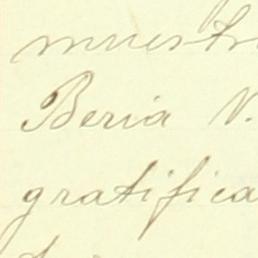 muestr
Beria V.
gratifica